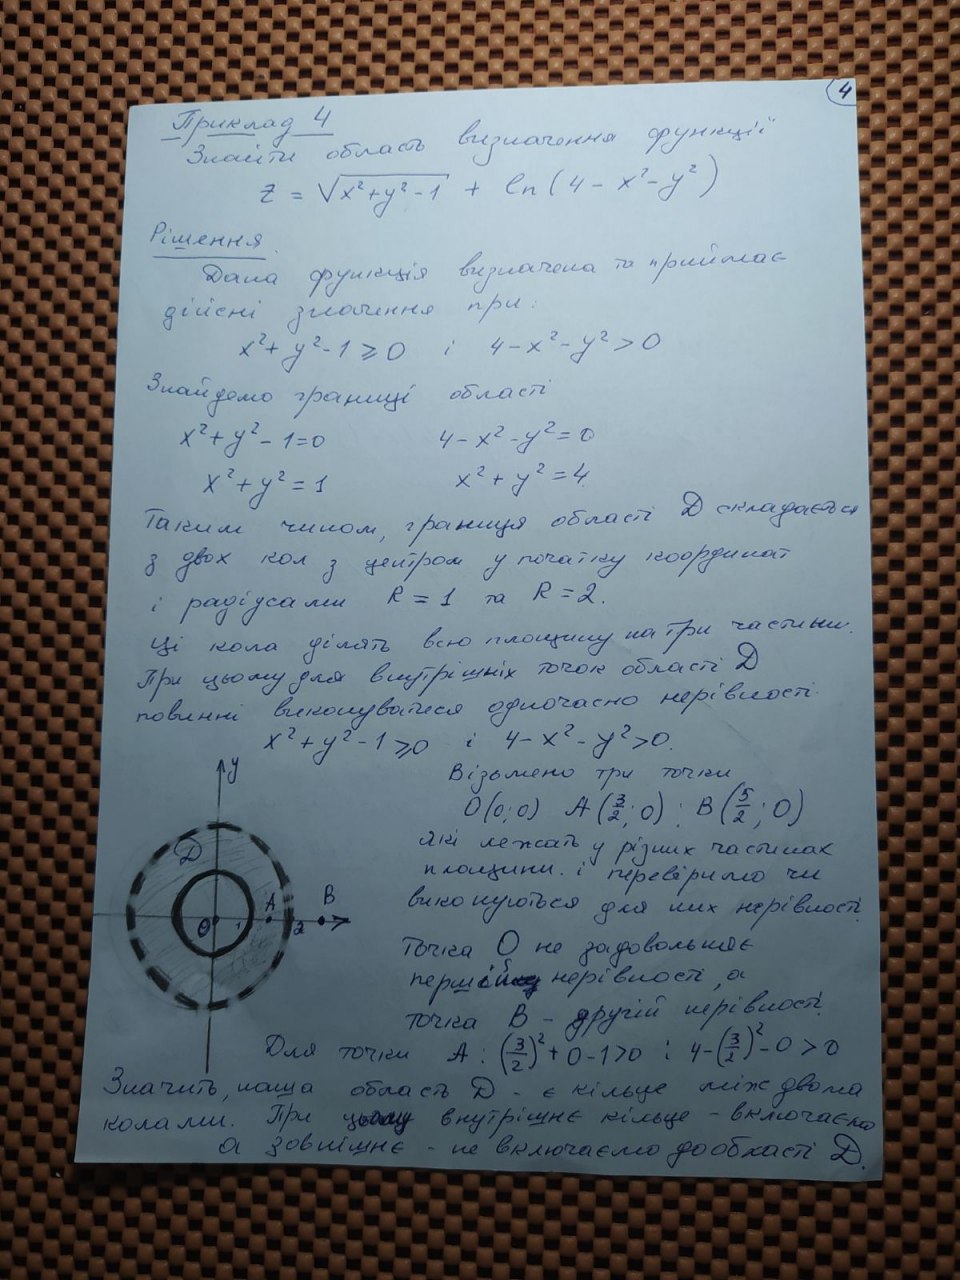 4
Приклад 4
Знайти область визначення функції
z = √(x²+y²-1) + ln(4-x²-y²)
Рішення
Дана функція визначена та приймає
дійсні значення при:
x²+y²-1⩾0 і 4-x²-y²>0
Знайдемо границі області
x²+y²-1=0 4-x²-y²=0
x²+y²=1 x²+y²=4
Таким чином, границя області D складається
з двох кол з центром у початку координат
і радіусами R=1 та R=2.
Ці кола ділять всю площину на три частини.
При цьому для внутрішніх точок області D
повинні виконуватися одночасно нерівності
x²+y²-1⩾0 і 4-x²-y²>0.
Візьмемо три точки
O(0;0) A(3/2;0); B(5/2;0)
які лежать у різних частинах
площини. і перевіримо чи
виконуються для них нерівності.
Точка O не задовольняє
першій нерівності, а
точка B - другій нерівності.
Для точки A: (3/2)²+0-1>0 і 4-(3/2)²-0>0
Значить, наша область D - є кільце між двома
колами. При цьому внутрішнє кільце - включаємо
а зовнішнє - не включаємо до області D.
y
D
O 1 A 2 B